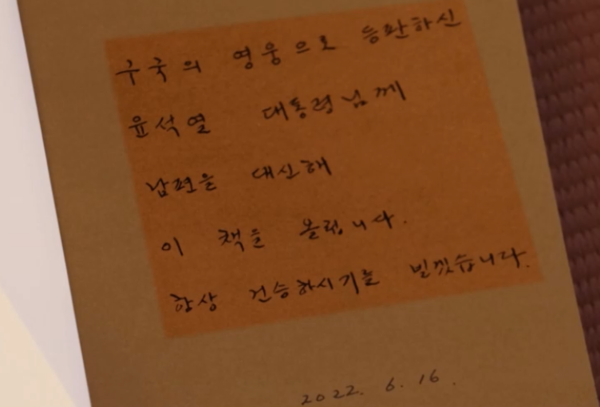 구국의 영웅으로 등판하신
윤석열 대통령님께
남편을 대신해
이 책을 올립니다.
항상 건승하시기를 빌겠습니다.
2022. 6. 16.